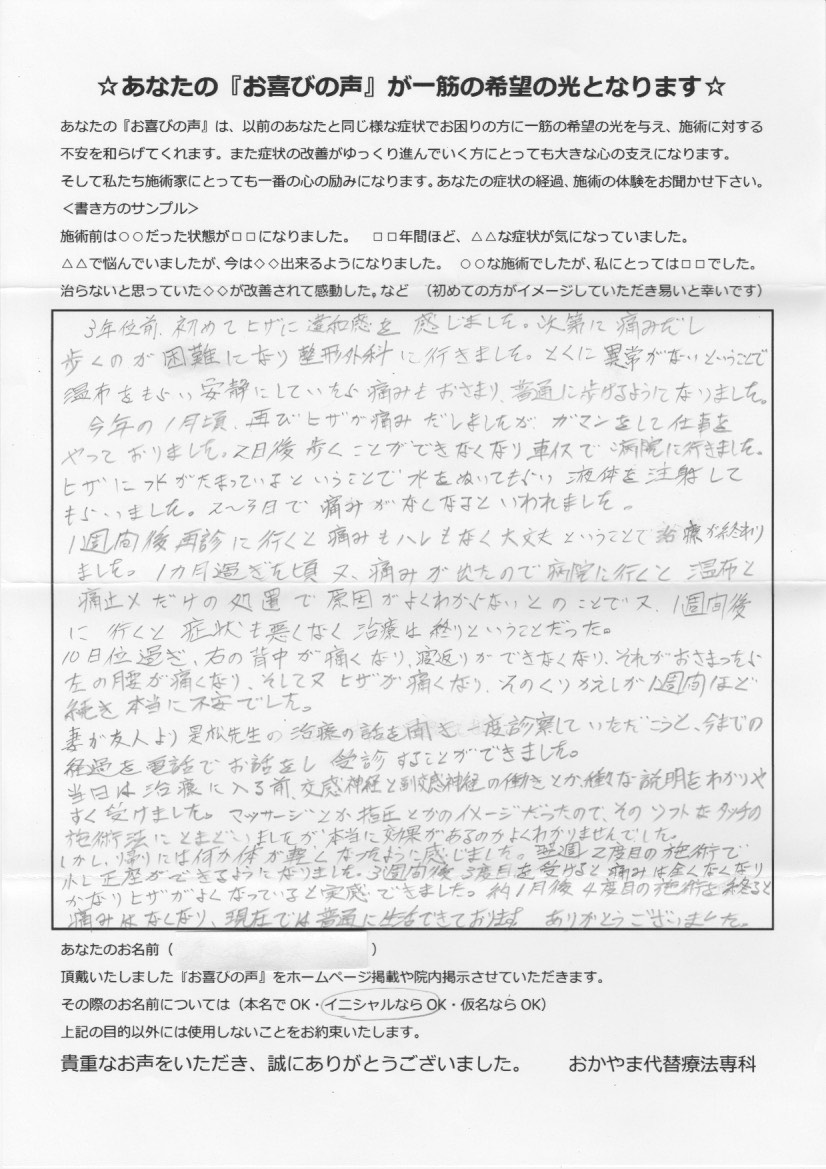 ☆あなたの『お喜びの声』が一筋の希望の光となります☆
あなたの『お喜びの声』は、以前のあなたと同じ様な症状でお困りの方に一筋の希望の光を与え、施術に対する
不安を和らげてくれます。また症状の改善がゆっくり進んでいく方にとっても大きな心の支えになります。
そして私たち施術家にとっても一番の心の励みになります。あなたの症状の経過、施術の体験をお聞かせ下さい。
＜書き方のサンプル＞
施術前は○○だった状態が□□になりました。 □□年間ほど、△△な症状が気になっていました。
△△で悩んでいましたが、今は◇◇出来るようになりました。 ○○な施術でしたが、私にとっては□□でした。
治らないと思っていた◇◇が改善されて感動した。など （初めての方がイメージしていただき易いと幸いです）
3年位前、初めてヒザに違和感を感じました。次第に痛みだし
歩くのが困難になり整形外科に行きました。とくに異常がないということで
温布をもらい安静にしていたら痛みもおさまり、普通に歩けるようになりました。
今年の1月頃、再びヒザが痛みだしましたが、ガマンをして仕事を
やっておりました。2日後歩くことができなくなり車イスで病院に行きました。
ヒザに水がたまっているということで水をぬいてもらい液体を注射して
もらいました。2～3日で痛みがなくなるといわれました。
1週間後再診に行くと痛みもハレもなく大丈夫ということで治療が終わり
ました。1カ月過ぎた頃又、痛みが出たので病院に行くと温布と
痛止メだけの処置で原因がよくわからないとのことで又、1週間後
に行くと症状も悪くなく治療は終りということだった。
10日位過ぎ、右の背中が痛くなり、寝返りができなくなり、それがおさまったら
左の腰が痛くなり、そして又ヒザが痛くなり、そのくりかえしが1週間ほど
続き本当に不安でした。
妻が友人より是松先生の治療の話を聞き一度診察していただこうと、今までの
経過を電話でお話をし受診することができました。
当日は治療に入る前、交感神経と副交感神経の働きとか、様々な説明をわかりや
すく受けました。マッサージとか指圧とかのイメージだったので、そのソフトなタッチの
施術法にとまどいましたが本当に効果があるのかよくわかりませんでした。
しかし、帰りには何か体が軽くなったように感じました。翌週2度目の施術で
少し正座ができるようになりました。3週間後3度目を受けると痛みは全くなくなり
かなりヒザがよくなっていると実感できました。約1月後4度目の施術を終ると
痛みはなくなり、現在では普通に生活できております ありがとうございました。
あなたのお名前（ ）
頂戴いたしました『お喜びの声』をホームページ掲載や院内掲示させていただきます。
その際のお名前については（本名で OK・イニシャルなら OK・仮名なら OK）
上記の目的以外には使用しないことをお約束いたします。
貴重なお声をいただき、誠にありがとうございました。 おかやま代替療法専科